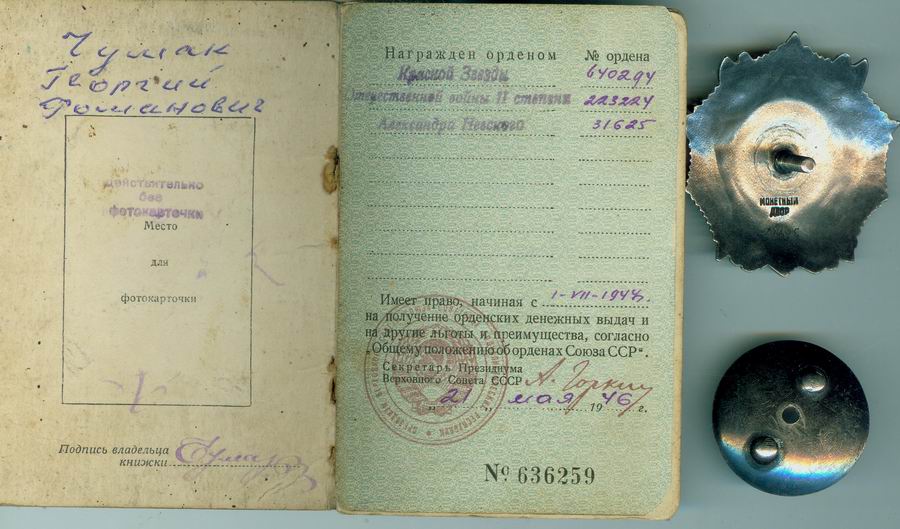 Чумак
Георгий
Романович
Действительно
без
фотокарточки
Место
для
фотокарточки
Подпись владельца
книжки
Награжден орденом № ордена
Красной Звезды 640294
Отечественной войны II степени 223224
Александра Невского 31625
Имеет право, начиная с 1-VII-1944г.
на получение орденских денежных выдач и
на другие льготы и преимущества, согласно
„Общему положению об орденах Союза ССР“.
Секретарь Президиума
Верховного Совета СССР А. Горкин
„21„ мая 1946 г.
№ 636259
МОНЕТНЫЙ
ДВОР